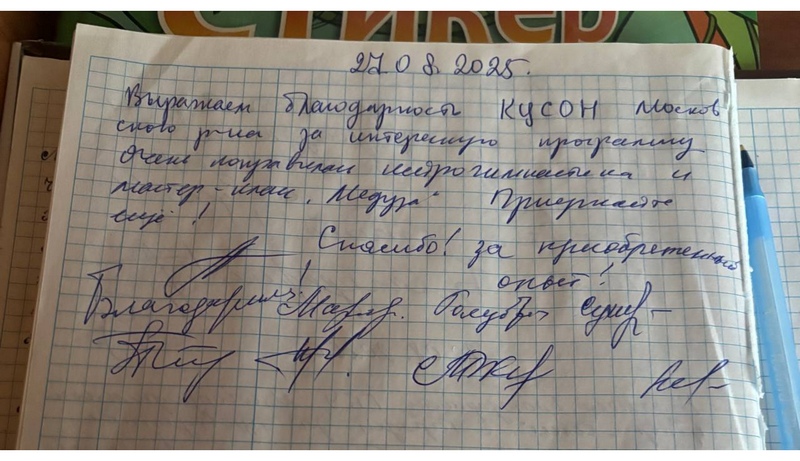 Стикер
27.08.2025.
Выражаем благодарность КЦСОН Москов
ского р-на за интересную программу
Очень понравилась нейрогимнастика и
мастер-класс "Медуза" Приезжайте
ещё!
Спасибо! за приобретенный
опыт!
Благодарим!